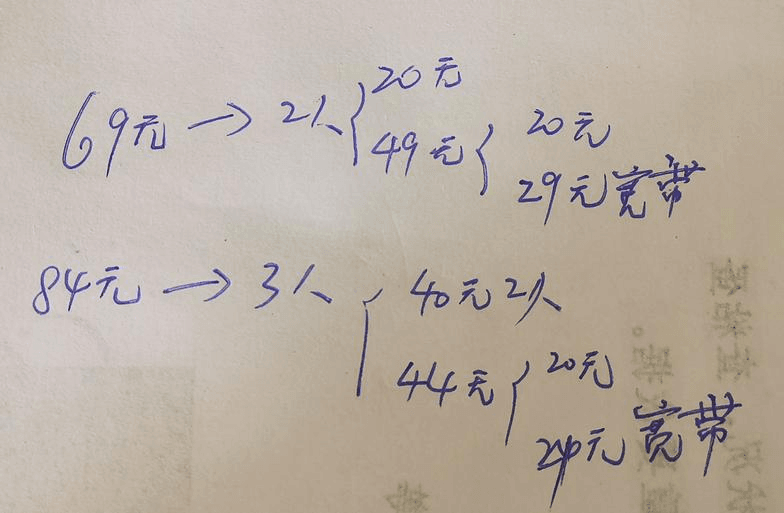 20元
69元 → 2人
49元
20元
29元宽带
84元 → 3人
40元2人
44元
20元
24元宽带